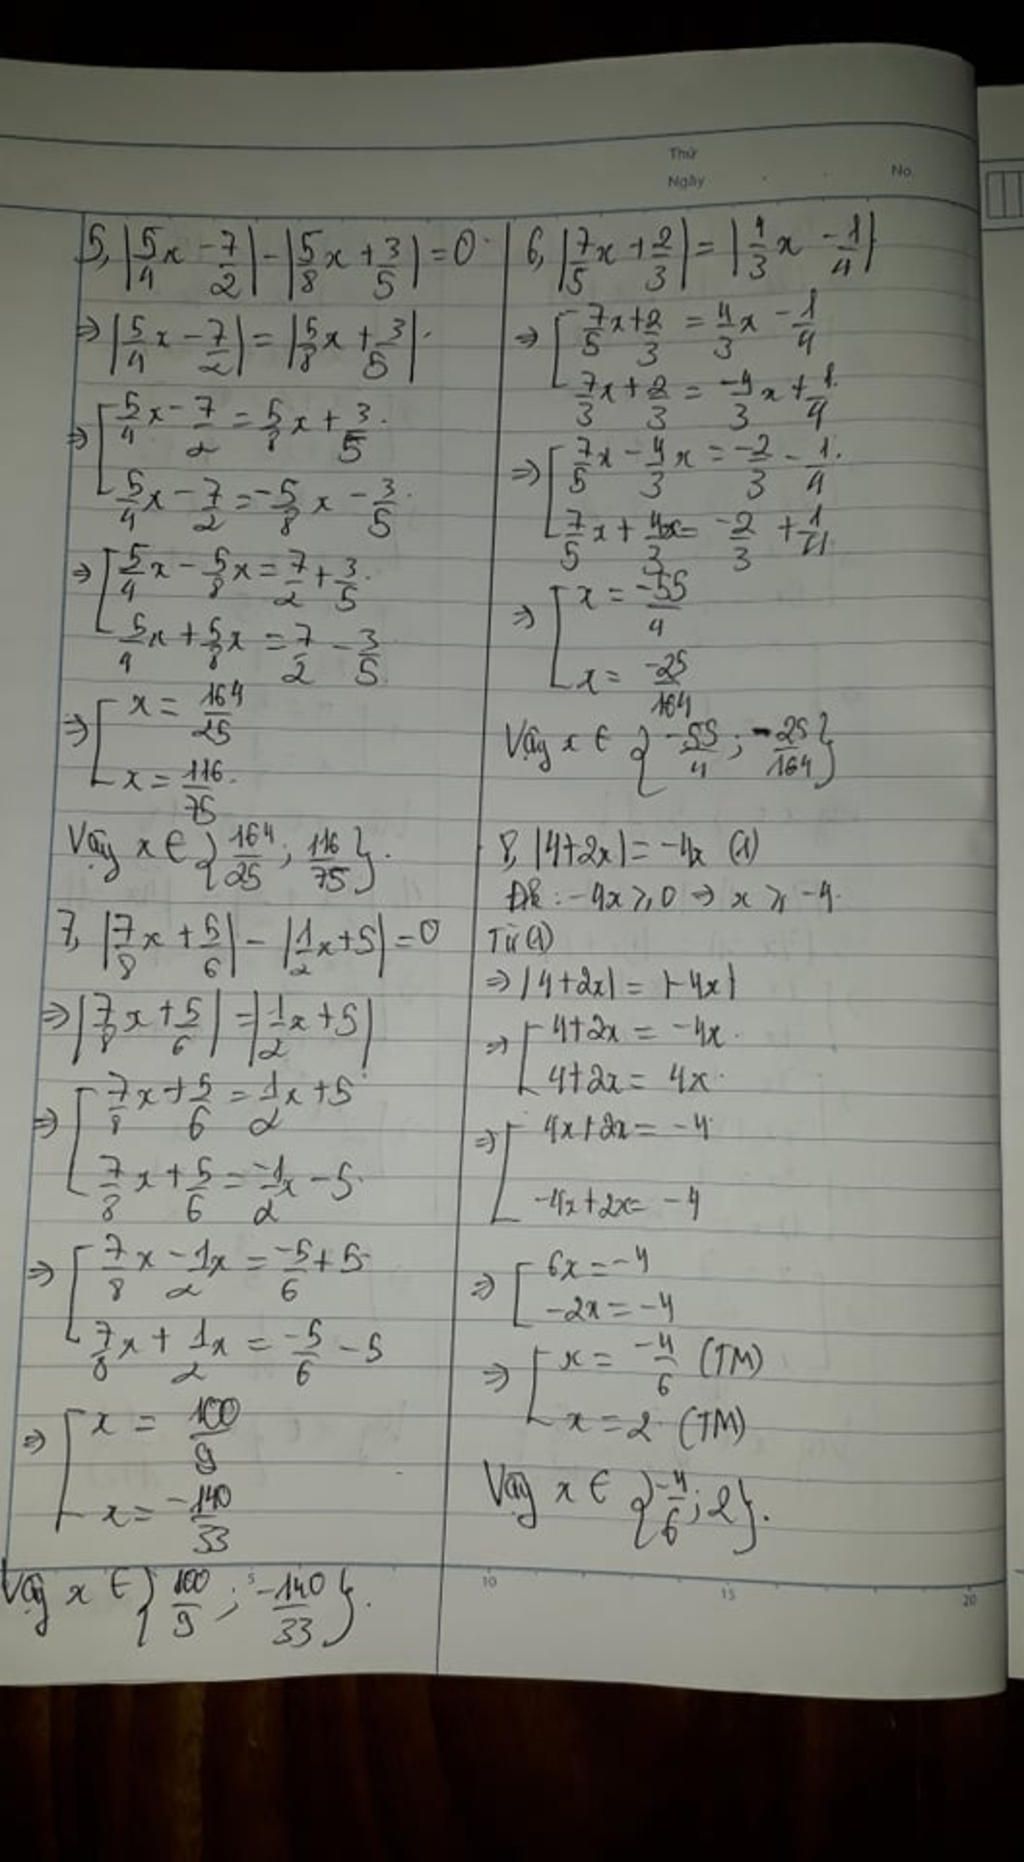 Thứ
Ngày
No.
5, |5/4x - 7/2| - |5/8x + 3/5| = 0
⇒ |5/4x - 7/2| = |5/8x + 3/5|.
⇒ [ 5/4x - 7/2 = 5/8x + 3/5.
5/4x - 7/2 = -5/8x - 3/5.
⇒ [ 5/4x - 5/8x = 7/2 + 3/5.
5/4x + 5/8x = 7/2 - 3/5.
⇒ [ x = 164/25
x = 116/75.
Vậy x ∈ {164/25; 116/75}.
7, |7/8x + 5/6| - |1/2x + 5| = 0
⇒ |7/8x + 5/6| = |1/2x + 5|
⇒ [ 7/8x + 5/6 = 1/2x + 5
7/8x + 5/6 = -1/2x - 5.
⇒ [ 7/8x - 1/2x = -5/6 + 5
7/8x + 1/2x = -5/6 - 5
⇒ [ x = 100/9
x = -140/33
Vậy x ∈ {100/9; -140/33}.
6, |7/5x + 2/3| = |4/3x - 1/4|
⇒ [ 7/5x + 2/3 = 4/3x - 1/4
7/3x + 2/3 = -4/3x + 1/4.
⇒ [ 7/5x - 4/3x = -2/3 - 1/4.
7/5x + 4/3x = -2/3 + 1/4.
⇒ [ x = -55/4
x = -25/164
Vậy x ∈ {-55/4; -25/164}
8, |4+2x| = -4x (1)
ĐK: -4x ⩾ 0 ⇒ x ⩾ -4.
Từ (1)
⇒ |4+2x| = |-4x|
⇒ [ 4+2x = -4x.
4+2x = 4x.
⇒ [ 4x+2x = -4
-4x+2x = -4
⇒ [ 6x = -4
-2x = -4
⇒ [ x = -4/6 (TM)
x = 2. (TM)
Vậy x ∈ {-4/6; 2}.
5
10
15
20